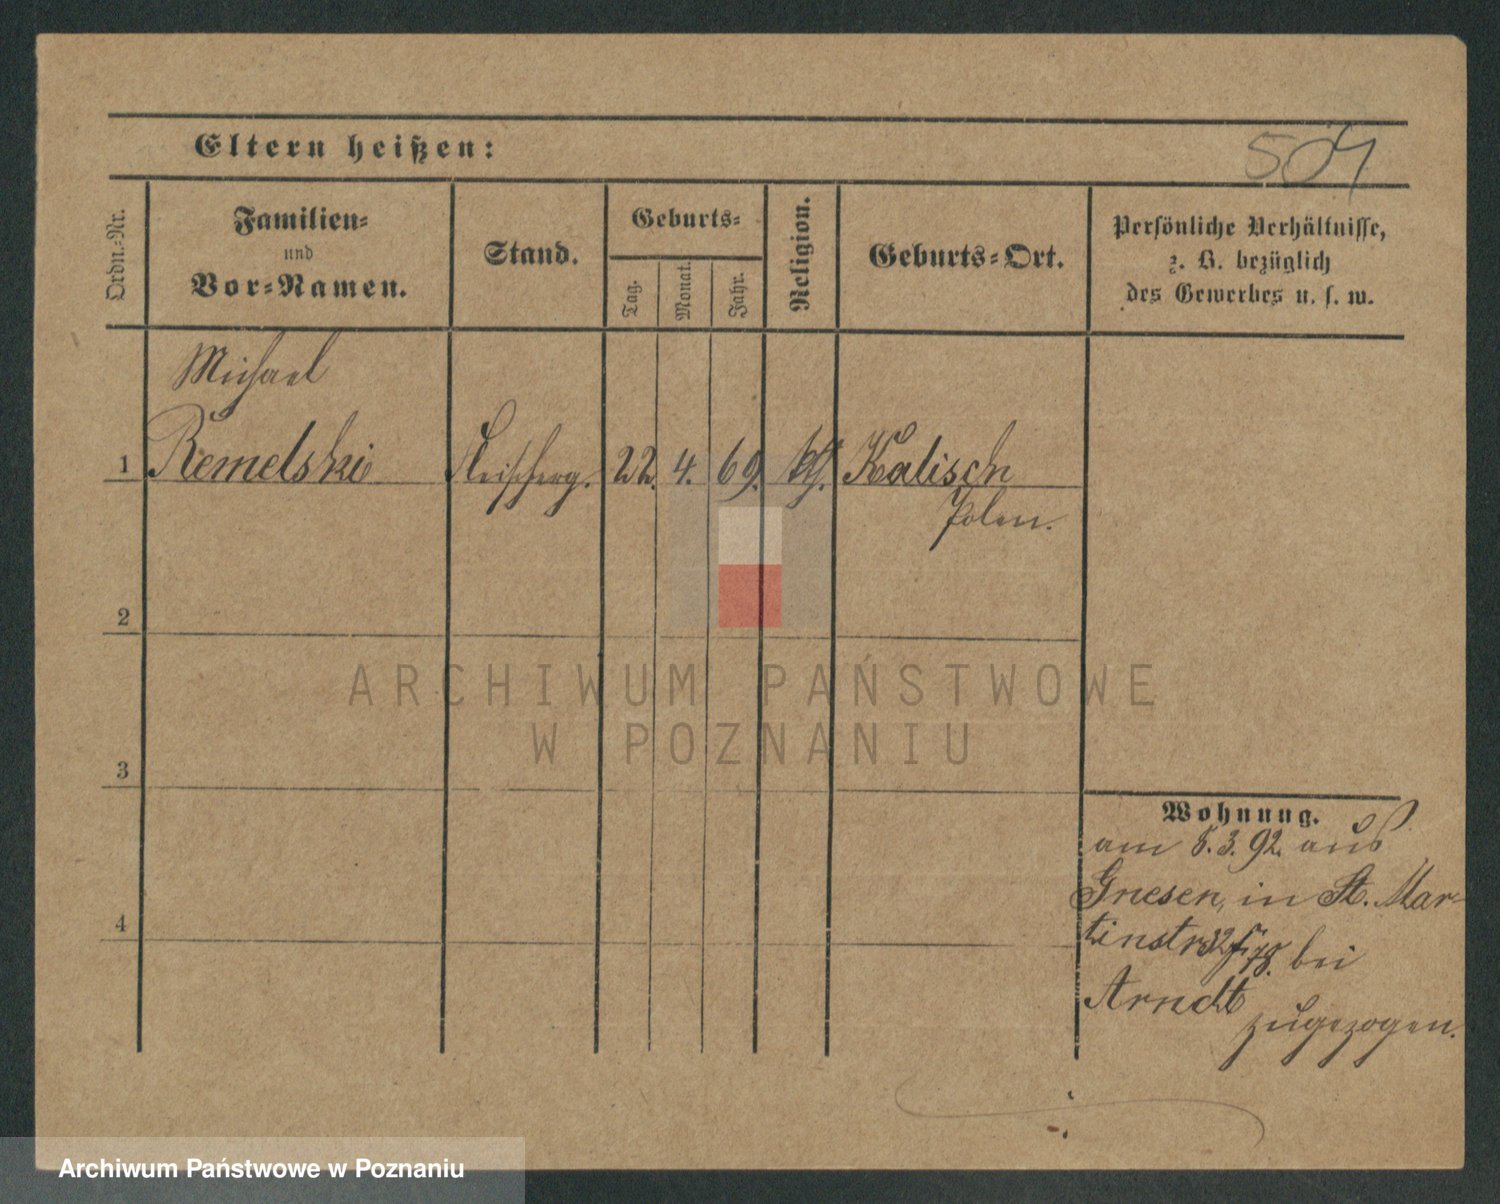 504
Eltern heißen:
Ordn.-Nr.
Familien-
und
Vor-Namen.
Stand.
Geburts-
Tag.
Monat.
Jahr.
Religion.
Geburts-Ort.
Persönliche Verhältnisse,
z. B. bezüglich
des Gewerbes u. s. w.
Michael
1 Remelski Fleischerg. 22. 4. 69. Kalisch
Polen.
2
3
4
Wohnung.
am 8. 3. 92. aus
Gnesen, in St. Mar-
tinstr. bei
Arndt
zugezogen.
ARCHIWUM PAŃSTWOWE
W POZNANIU
Archiwum Państwowe w Poznaniu